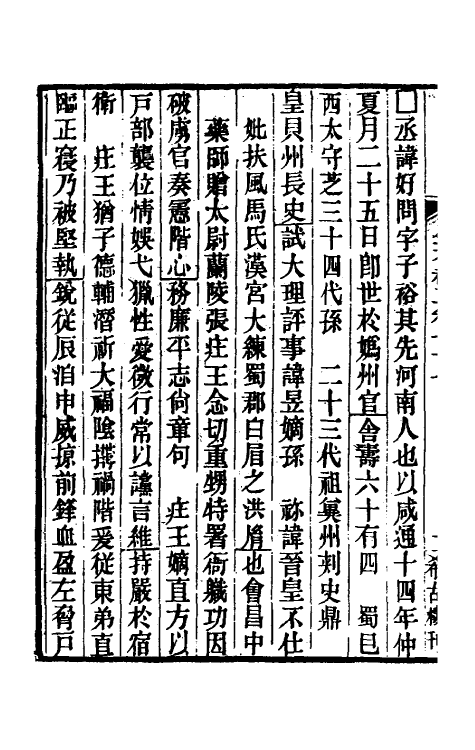 □丞諱好問字子裕其先河南人也以咸通十四年仲
夏月二十五日卽世於嬀州官舍壽六十有四　蜀巳
西太守芝三十四代孫　二十三代祖冀州刾史鼎
皇貝州長史試大理評事諱昱嫡孫　祢諱晉皇不仕
妣扶風馬氏漢宮大練蜀郡白眉之洪𦙍也會昌中
藥師贈太尉蘭陵張㽵王念切重甥特署衙軄功因
破虜官奏憲階心務廉平志尙章句　㽵王嫡直方以
戸部襲位情娛弋獵性愛微行常以讜言維持嚴於宿
衛　㽵王猶子德輔潛祈大福陰搆禍階爰從東弟直
臨正寢乃被堅執銳從辰洎申威掠前鋒血盈左脅戸
希古樓刊